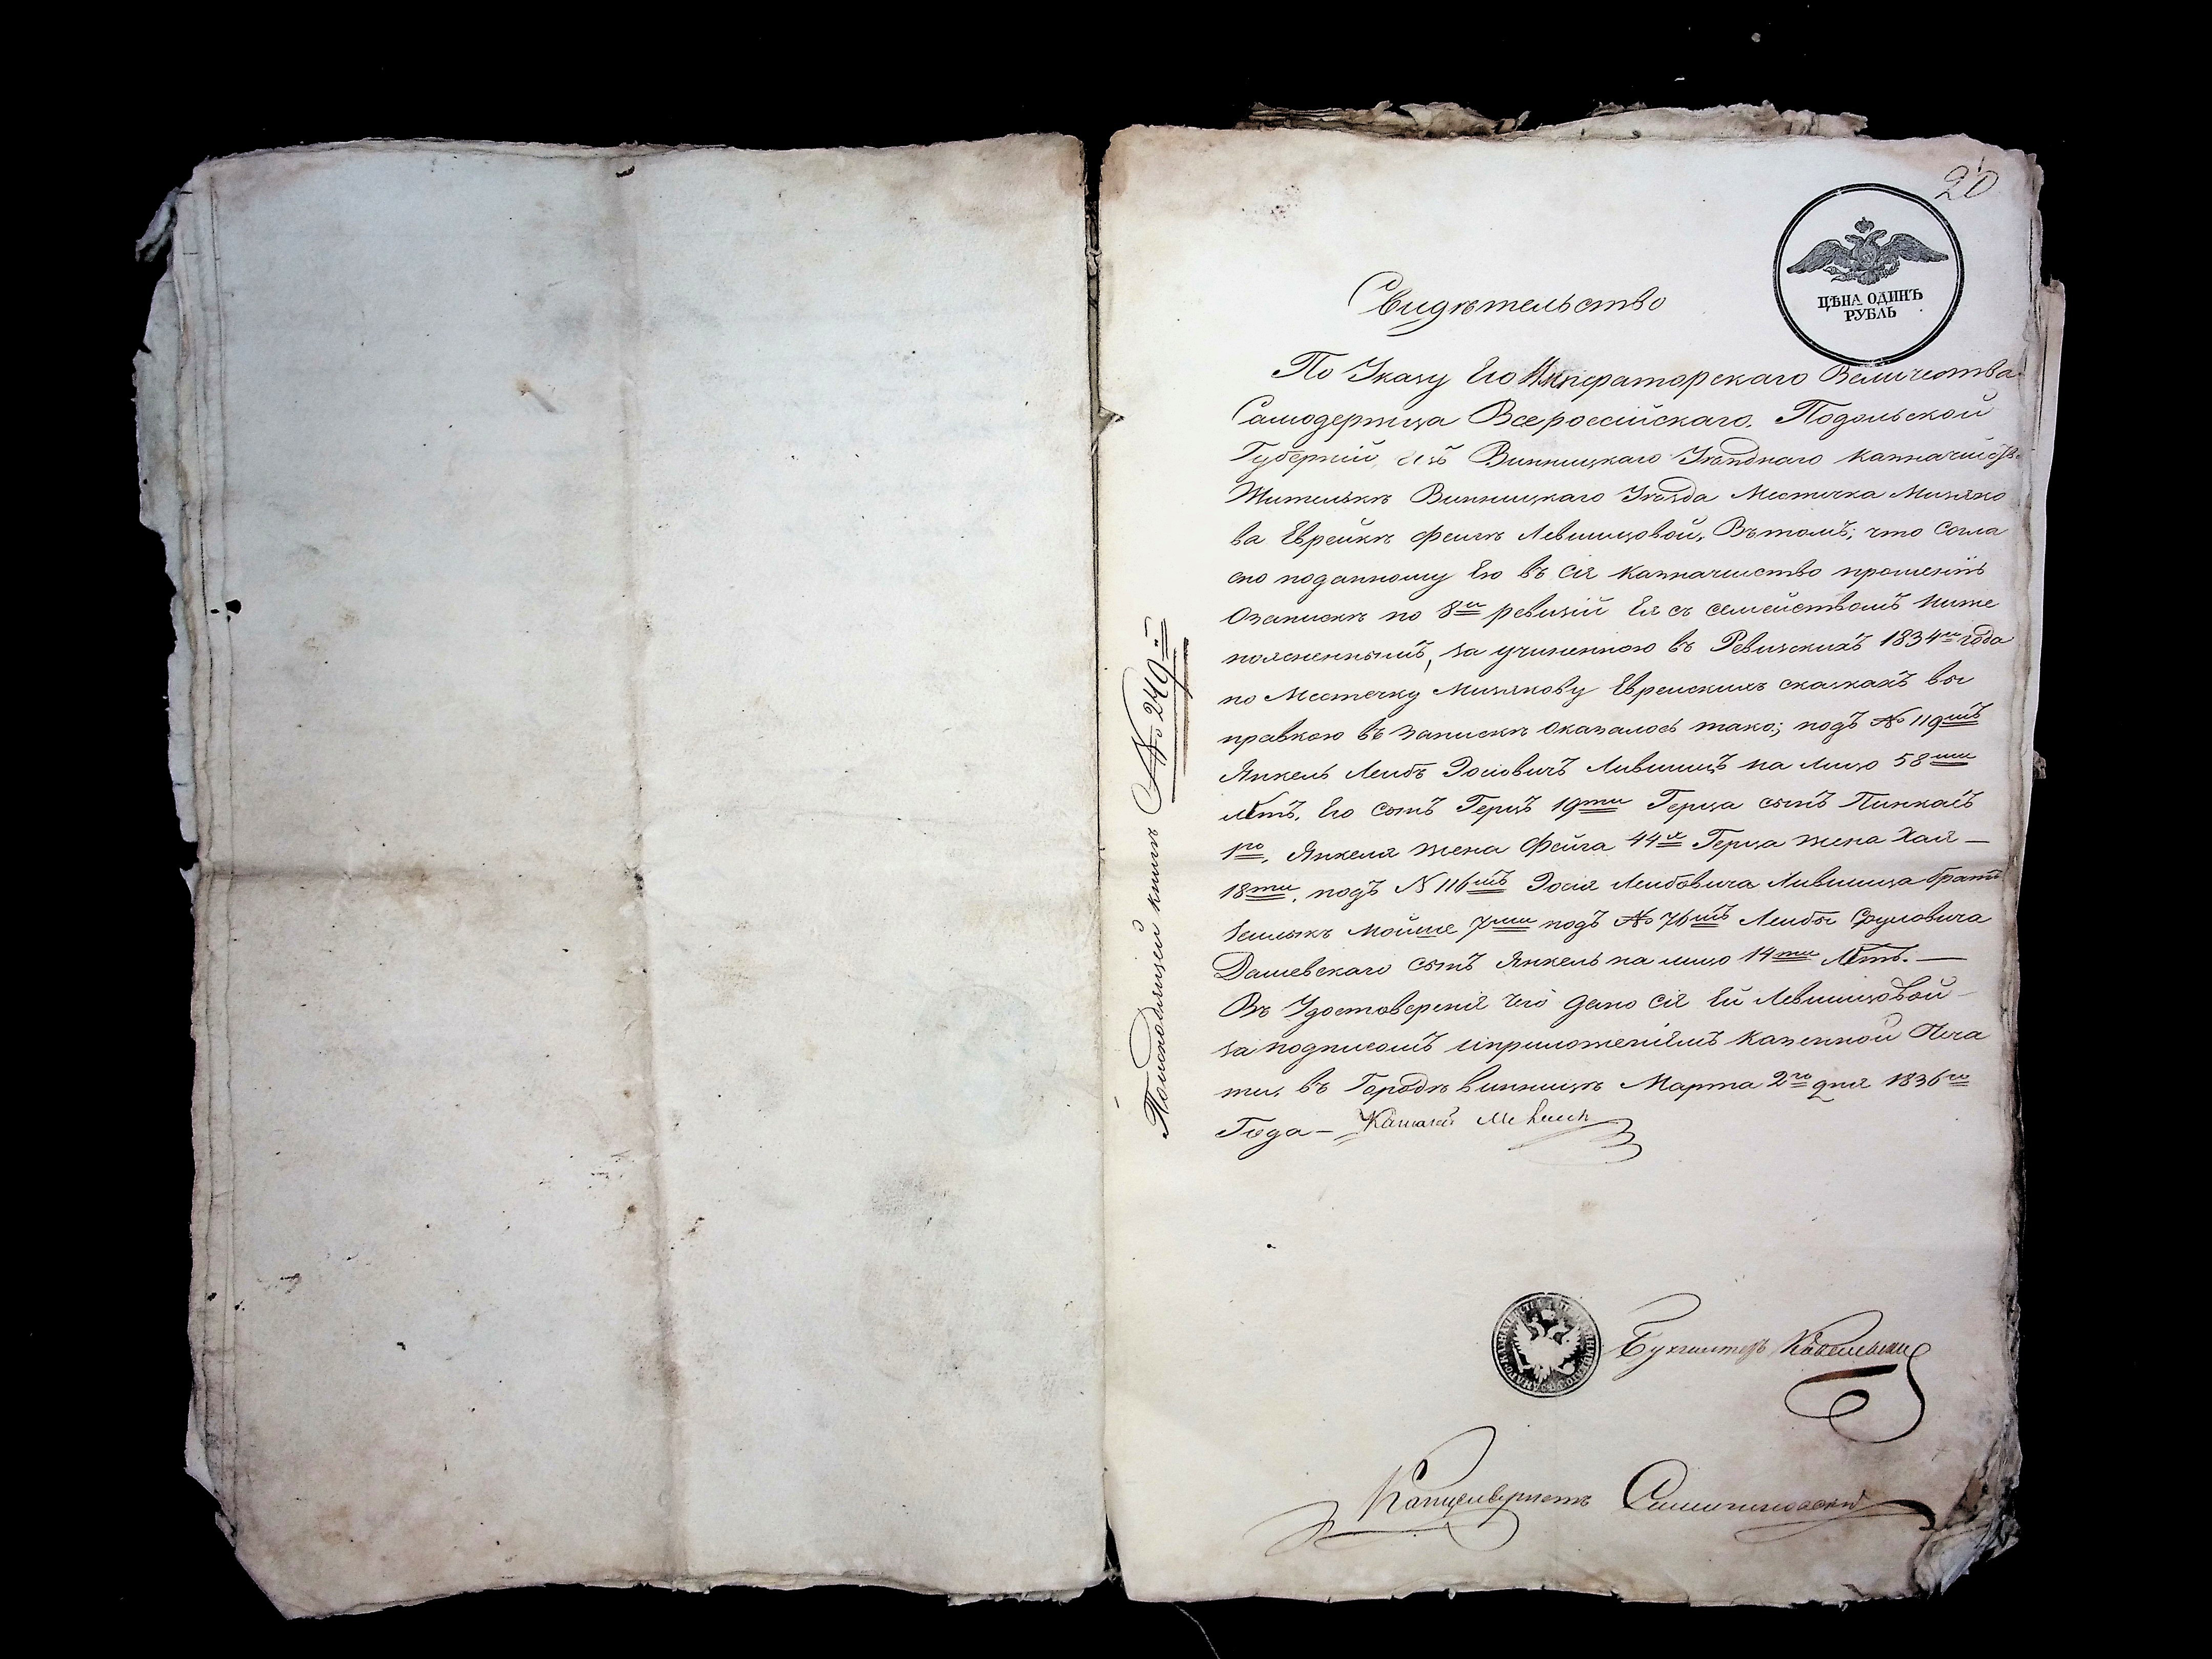 20
ЦѢНА ОДИНЪ
РУБЛЬ
Свидѣтельство
По Указу Его Императорскаго Величества
Самодержца Всероссійскаго. Подольской
Губерніи, изъ Винницкаго Уѣзднаго Казначейст.
Жителькѣ Винницкаго Уѣзда Местечка Мизяко
ва Еврейкѣ Фейгѣ Левшицовой, Вътомъ; что Согла
сно поданному Ею въ Сіе Казначиство прошенію
Озапискѣ по 8й ревизіи Ея съ семействомъ Ниже
пояснennымъ, за учиненною въ Ревизскихъ 1834го года
по Местечку Мизякову Еврейскихъ сказкахъ вы
правкою въ запискѣ Оказалось тако; подъ № 119мъ
Янкель Лейбъ Іосіовичъ Лившицъ на лицо 58ми
лѣтъ, Его сынъ Герцъ 19ти Герца сынъ Пинкасъ
1го, Янкеля жена Фейга 44х Герца жена Хая —
18ти, подъ N 116мъ Іосія Лейбовича Лившица братъ
Зеилыкъ Мойше 7ми подъ № 76мъ Лейбы Сруловича
Дашевскаго сынъ Янкель на лицо 14ти Лѣтъ. —
Въ Удостовереніе чего дано сіе Ей Левшицовой —
за подписомъ иприложеніемъ Казенной Печа
ти, въ Городѣ Винницѣ Марта 2го дня 1836го
Года —
По исходящей книгѣ № 240й
Бухгалтеръ
Канцеляристъ